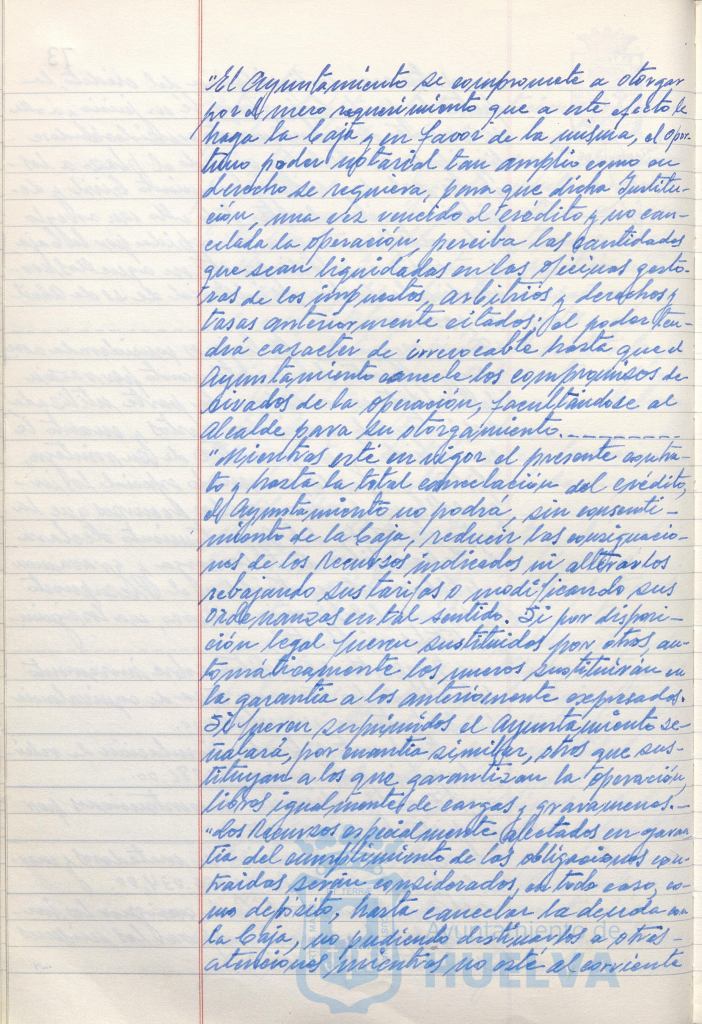 "El Ayuntamiento se compromete a otorgar
por el mero requerimiento que a este efecto le
haga la Caja y en favor de la misma, el opor-
tuno poder notarial tan amplio como en
derecho se requiera, para que dicha Institu-
ción, una vez vencido el crédito y no can-
celada la operación, perciba las cantidades
que sean liquidadas en las oficinas gesto-
ras de los impuestos, arbitrios y derechos y
tasas anteriormente citados; el poder ten-
drá caracter de irrevocable hasta que el
Ayuntamiento cancele los compromisos de
rivados de la operación, facultándose al
Alcalde para su otorgamiento.---------
"Mientras esté en vigor el presente contra-
to y hasta la total cancelación del crédito,
el Ayuntamiento no podrá, sin consenti-
miento de la Caja, reducir las consignacio-
nes de los Recursos indicados ni alterarlos
rebajando sus tarifas o modificando sus
Ordenanzas en tal sentido. Si por disposi-
ción legal fueren sustituidos por otros, au-
tomáticamente los nuevos sustituirán en
la garantía a los anteriormente expresados.
Si fueran suprimidos el Ayuntamiento se-
ñalará, por cuantía similar, otros que sus-
tituyan a los que garantizan la operación,
libros igualmente de cargas y gravamenes.-
"Los Recursos especialmente afectados en garan-
tía del cumplimiento de las obligaciones con-
traidas serán considerados, en todo caso, co-
mo depósito, hasta cancelar la deuda con
la Caja, no pudiendo destinarlos a otras-
atenciones mientras no esté al corriente
Ayuntamiento de
HUELVA